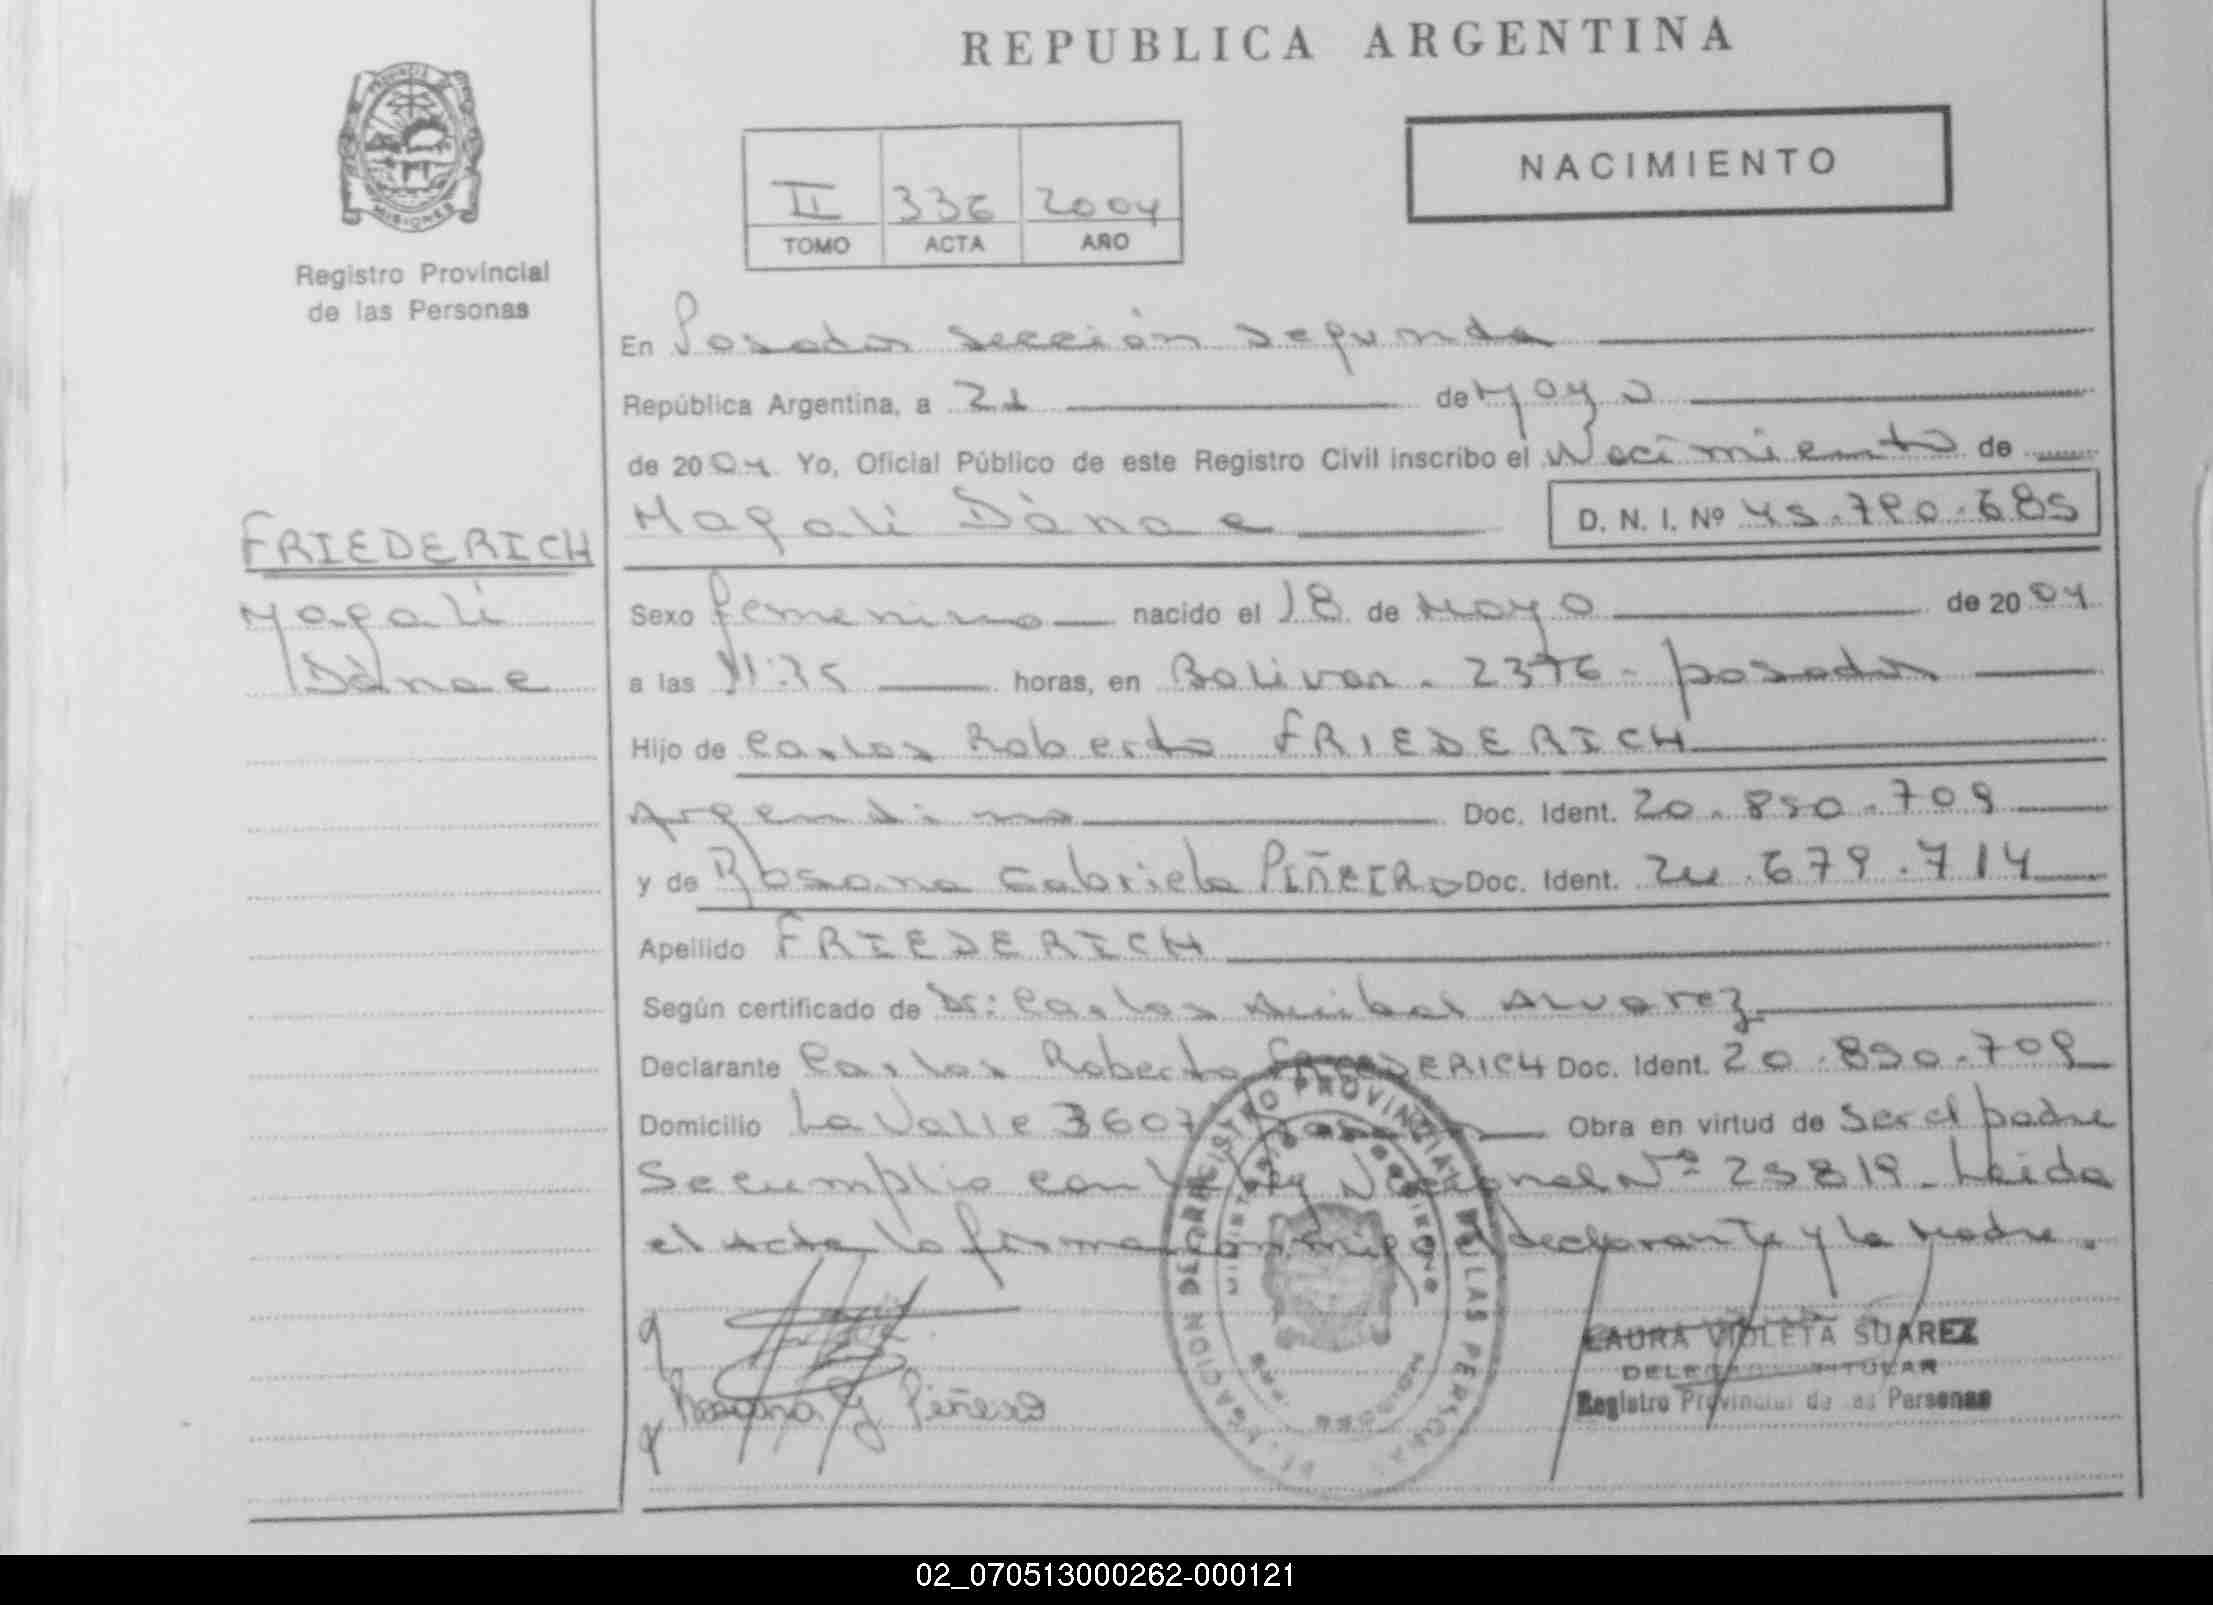 REPUBLICA ARGENTINA
NACIMIENTO
II 336 2004
TOMO ACTA AÑO
MISIONES
Registro Provincial
de las Personas
En Posadas sección segunda
República Argentina, a 21 de Mayo
de 2004 Yo, Oficial Público de este Registro Civil inscribo el Nacimiento de
Magalí Dànae D. N. I. Nº 45.790.685
FRIEDERICH
Magalí
Dànae
Sexo femenino nacido el 18 de Mayo de 2004
a las 11:35 horas, en Bolivar. 2376 - posadas
Hijo de Carlos Roberto FRIEDERICH
Argentino Doc. Ident. 20.890.709
y de Rosana Gabriela PIÑEIRO Doc. Ident. 24.679.714
Apellido FRIEDERICH
Según certificado de Dr: Carlos Anibal Alvarez
Declarante Carlos Roberto FRIEDERICH Doc. Ident. 20.890.709
Domicilio La Valle 3607 Obra en virtud de ser el padre
Se cumplio con la ley Nacional Nº 25819. Leida
el Acta la firman conmigo el declarante y la Madre.
LAURA VIOLETA SUAREZ
DELEGADA TITULAR
Registro Provincial de las Personas
Rosana G Piñeiro
02_070513000262-000121